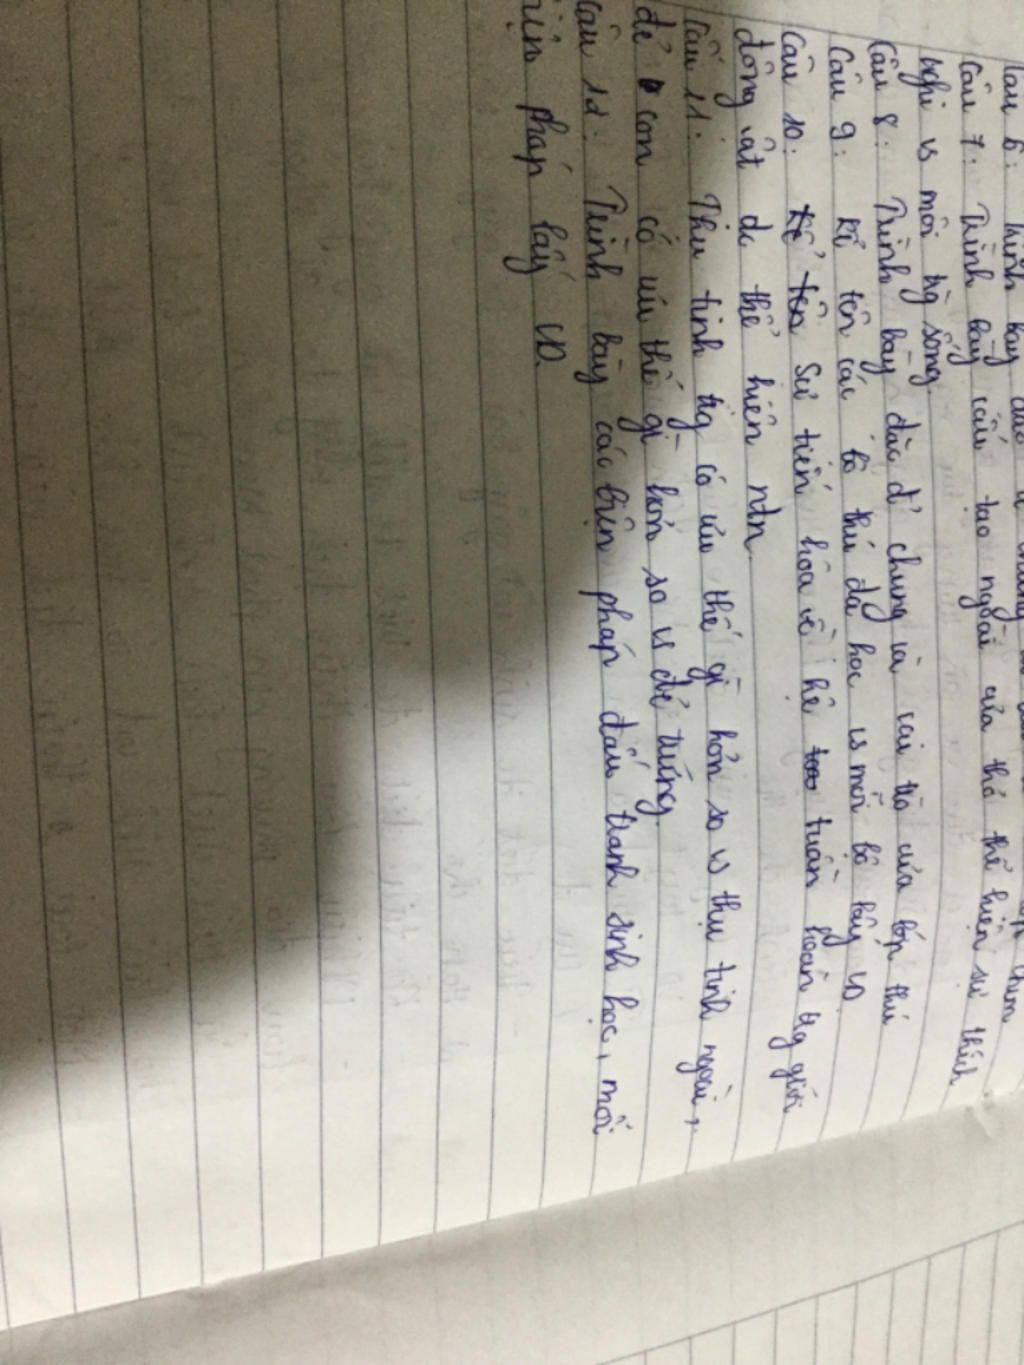 Câu 6: Trình bày
Câu 7: Trình bày cấu tạo ngoài của thỏ thể hiện sự thích
nghi vs môi trg sống.
Câu 8: Trình bày đặc đ' chung và vai trò của lớp thú
Câu 9: kể tên các bộ thú đã học vs mỗi bộ lấy VD
Câu 10: kể tên Sự tiến hóa về hệ tuần hoàn trg giới
động vật đc thể hiện ntn.
Câu 11: Thụ tinh trg có ưu thế gì hơn so vs thụ tinh ngoài,
đẻ con có ưu thế gì hơn so vs đẻ trứng.
Câu 12: Trình bày các biện pháp đấu tranh sinh học, mỗi
biện pháp lấy VD.